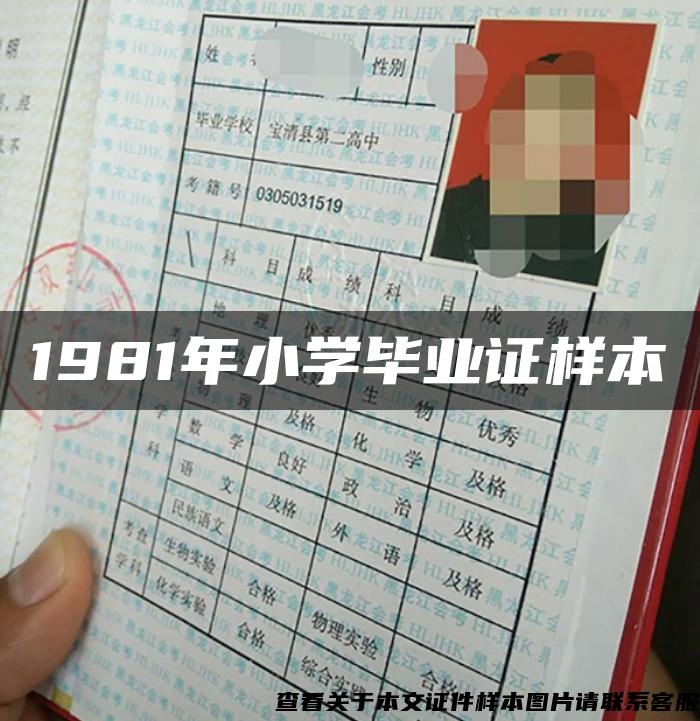 明
经
不
姓 性别
毕业学校 宝清县第二高中
考籍号 0305031519
科目 成绩 科目 成绩
地理 优秀
1981年小学毕业证样本
物理 及格 生物 优秀
数学 良好 化学 及格
语文 及格 政治 及格
民族语文 外语 及格
考查学科 生物实验 合格 物理实验 合格
化学实验 合格 综合实
黑龙江会考 HLJHK
查看关于本文证件样本图片请联系客服